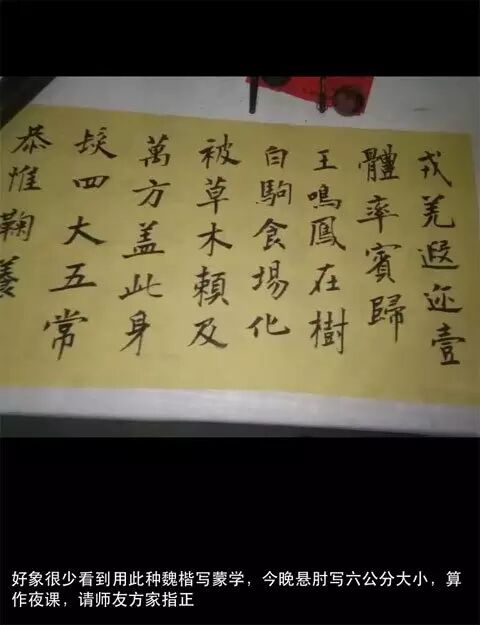 戎羌遐迩壹
體率賓歸
王鳴鳳在樹
白駒食場化
被草木賴及
萬方盖此身
髮四大五常
恭惟鞠養
好象很少看到用此种魏楷写蒙学，今晚悬肘写六公分大小，算
作夜课，请师友方家指正